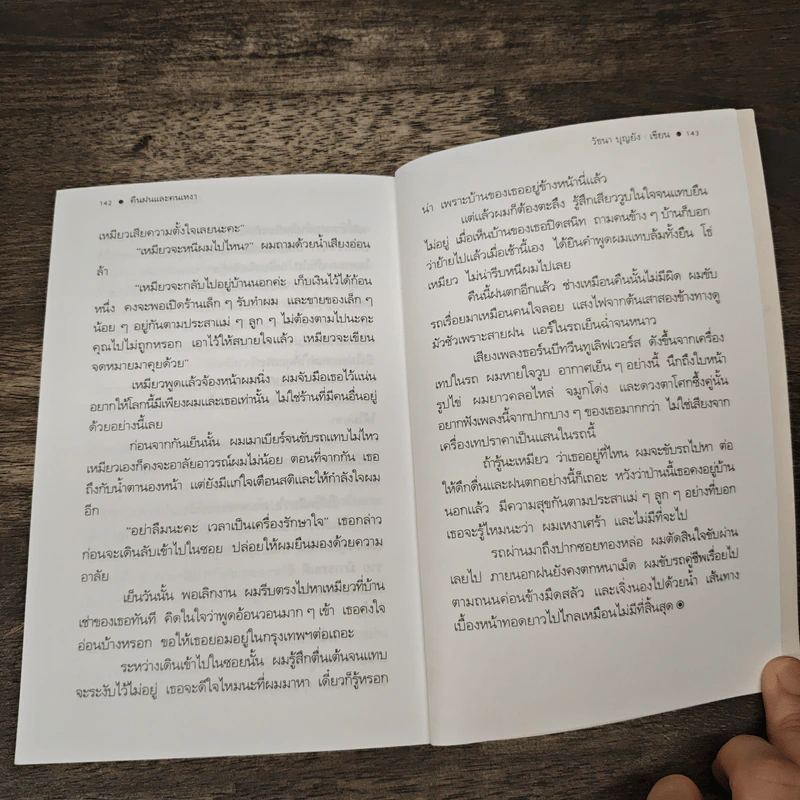 142 ● คืนฝนและคนเหงา
เหมียวเสียความตั้งใจเลยนะคะ"
"เหมียวจะหนีผมไปไหน?" ผมถามด้วยน้ำเสียงอ่อน
ล้า
"เหมียวจะกลับไปอยู่บ้านนอกค่ะ เก็บเงินไว้ได้ก้อน
หนึ่ง คงจะพอเปิดร้านเล็ก ๆ รับทำผม และขายของเล็ก ๆ
น้อย ๆ อยู่กันตามประสาแม่ ๆ ลูก ๆ ไม่ต้องตามไปนะคะ
คุณไปไม่ถูกหรอก เอาไว้ให้สบายใจแล้ว เหมียวจะเขียน
จดหมายมาคุยด้วย"
เหมียวพูดแล้วจ้องหน้าผมนิ่ง ผมจับมือเธอไว้แน่น
อยากให้โลกนี้มีเพียงผมและเธอเท่านั้น ไม่ใช่ร้านที่มีคนอื่นอยู่
ด้วยอย่างนี้เลย
ก่อนจากกันเย็นนั้น ผมเมาเบียร์จนขับรถแทบไม่ไหว
เหมียวเองก็คงจะอาลัยอาวรณ์ผมไม่น้อย ตอนที่จากกัน เธอ
ถึงกับน้ำตานองหน้า แต่ยังมีแก่ใจเตือนสติและให้กำลังใจผม
อีก
"อย่าลืมนะคะ เวลาเป็นเครื่องรักษาใจ" เธอกล่าว
ก่อนจะเดินลับเข้าไปในซอย ปล่อยให้ผมยืนมองด้วยความ
อาลัย
เย็นวันนั้น พอเลิกงาน ผมรีบตรงไปหาเหมียวที่บ้าน
เช่าของเธอทันที คิดในใจว่าพูดอ้อนวอนมาก ๆ เข้า เธอคงใจ
อ่อนบ้างหรอก ขอให้เธอยอมอยู่ในกรุงเทพฯต่อเถอะ
ระหว่างเดินเข้าไปในซอยนั้น ผมรู้สึกตื่นเต้นจนแทบ
จะระงับไว้ไม่อยู่ เธอจะดีใจไหมนะที่ผมมาหา เดี๋ยวก็รู้หรอก
วัธนา บุญยัง : เขียน ● 143
น่า เพราะบ้านของเธออยู่ข้างหน้านี่แล้ว
แต่แล้วผมก็ต้องตะลึง รู้สึกเสียววูบในใจจนแทบยืน
ไม่อยู่ เมื่อเห็นบ้านของเธอปิดสนิท ถามคนข้าง ๆ บ้านก็บอก
ว่าย้ายไปแล้วเมื่อเช้านี้เอง ได้ยินคำพูดผมแทบล้มทั้งยืน โธ่
เหมียว ไม่น่ารีบหนีผมไปเลย
คืนนี้ฝนตกอีกแล้ว ช่างเหมือนคืนนั้นไม่มีผิด ผมขับ
รถเรื่อยมาเหมือนคนใจลอย แสงไฟจากต้นเสาสองข้างทางดู
มัวซัวเพราะสายฝน แอร์ในรถเย็นฉ่ำจนหนาว
เสียงเพลงธอร์นบีทวีนทูเลิฟเวอร์ส ดังขึ้นจากเครื่อง
เทปในรถ ผมหายใจวูบ อากาศเย็น ๆ อย่างนี้ นึกถึงใบหน้า
รูปไข่ ผมยาวคลอไหล่ จมูกโด่ง และดวงตาโศกซึ้งคู่นั้น
อยากฟังเพลงนี้จากปากบาง ๆ ของเธอมากกว่า ไม่ใช่เสียงจาก
เครื่องเทปราคาเป็นแสนในรถนี้
ถ้ารู้นะเหมียว ว่าเธออยู่ที่ไหน ผมจะขับรถไปหา ต่อ
ให้ดึกดื่นและฝนตกอย่างนี้ก็เถอะ หวังว่าป่านนี้เธอคงอยู่บ้าน
นอกแล้ว มีความสุขกันตามประสาแม่ ๆ ลูก ๆ อย่างที่บอก
เธอจะรู้ไหมนะว่า ผมเหงาเศร้า และไม่มีที่จะไป
รถผ่านมาถึงปากซอยทองหล่อ ผมตัดสินใจขับผ่าน
เลยไป ภายนอกฝนยังคงตกหนาเม็ด ผมขับรถคู่ชีพเรื่อยไป
ตามถนนค่อนข้างมืดสลัว และเจิ่งนองไปด้วยน้ำ เส้นทาง
เบื้องหน้าทอดยาวไปไกลเหมือนไม่มีที่สิ้นสุด ◉